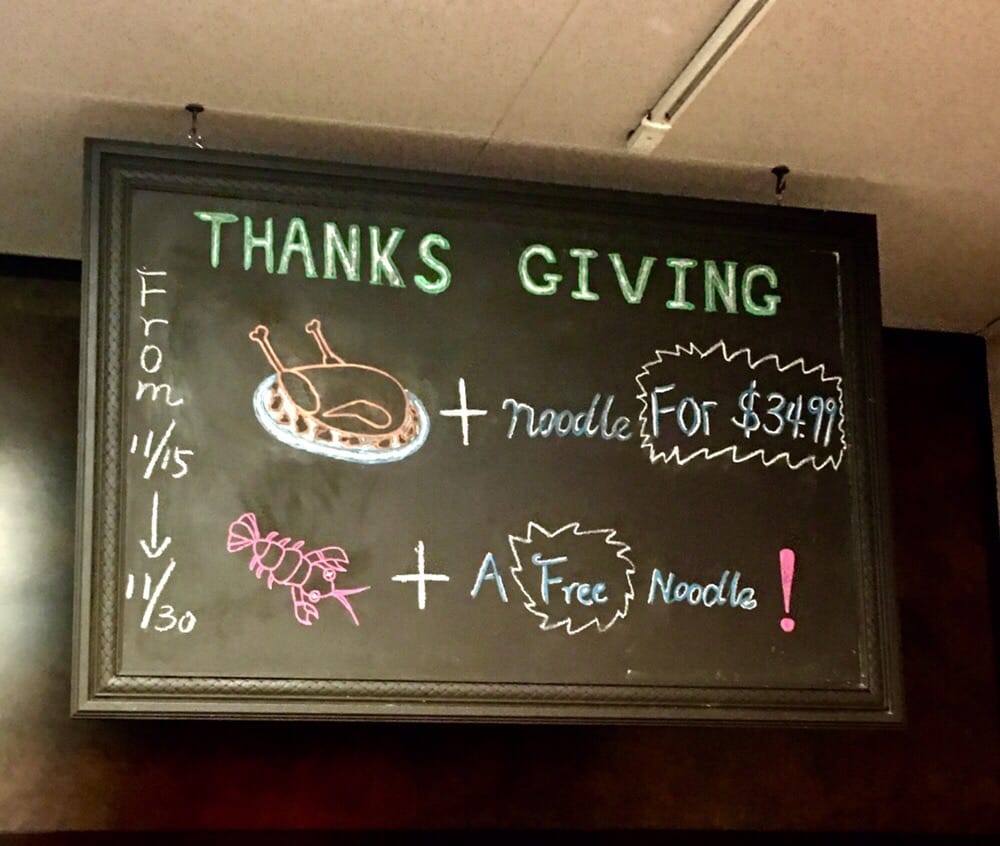 THANKS GIVING
From
11/15
11/30
+ noodle For $34.99
+ A Free Noodle !